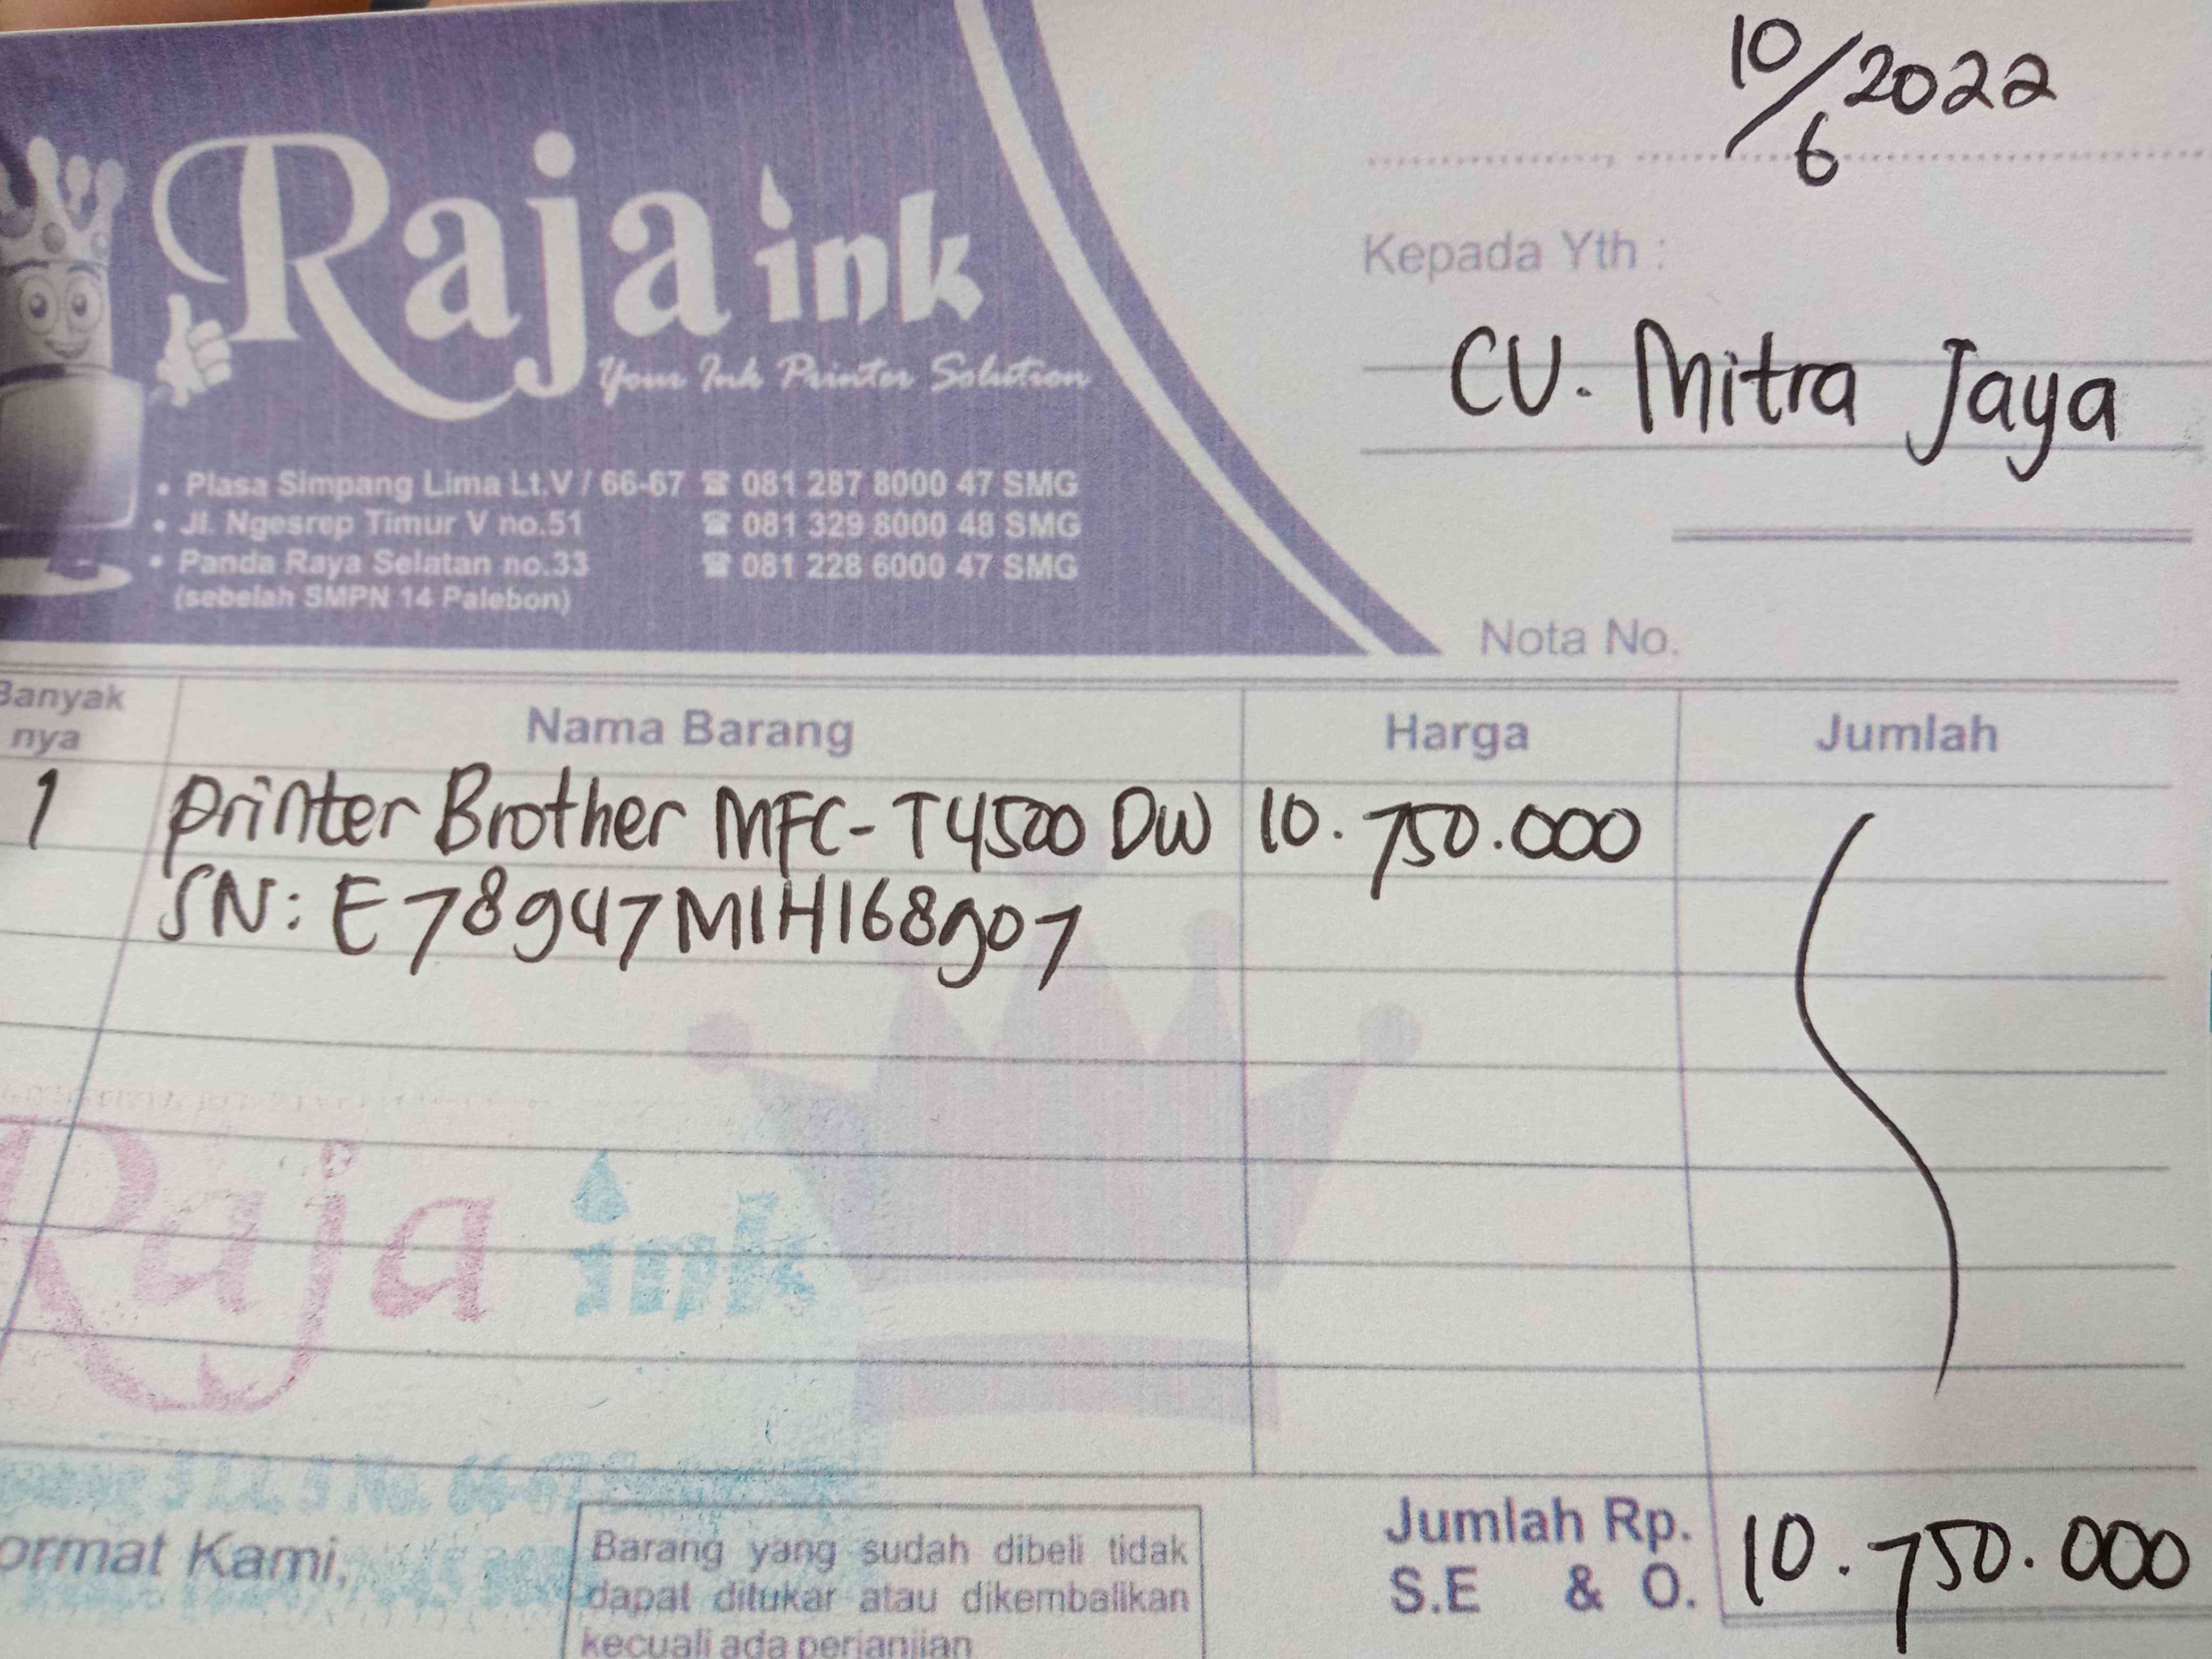 10/6 2022
Raja ink
Your Ink Printer Solution
Kepada Yth :
CV. Mitra Jaya
• Plasa Simpang Lima Lt.V / 66-67 ☎ 081 287 8000 47 SMG
• Jl. Ngesrep Timur V no.51 ☎ 081 329 8000 48 SMG
• Panda Raya Selatan no.33 ☎ 081 228 6000 47 SMG
(sebelah SMPN 14 Palebon)
Nota No.
Banyak
nya
Nama Barang
Harga
Jumlah
1 Printer Brother MFC-T4500 DW 10.750.000
SN: E78947M1H168907
Raja ink
ormat Kami,
Barang yang sudah dibeli tidak
dapat ditukar atau dikembalikan
kecuali ada perjanjian
Jumlah Rp. 10.750.000
S.E & O.